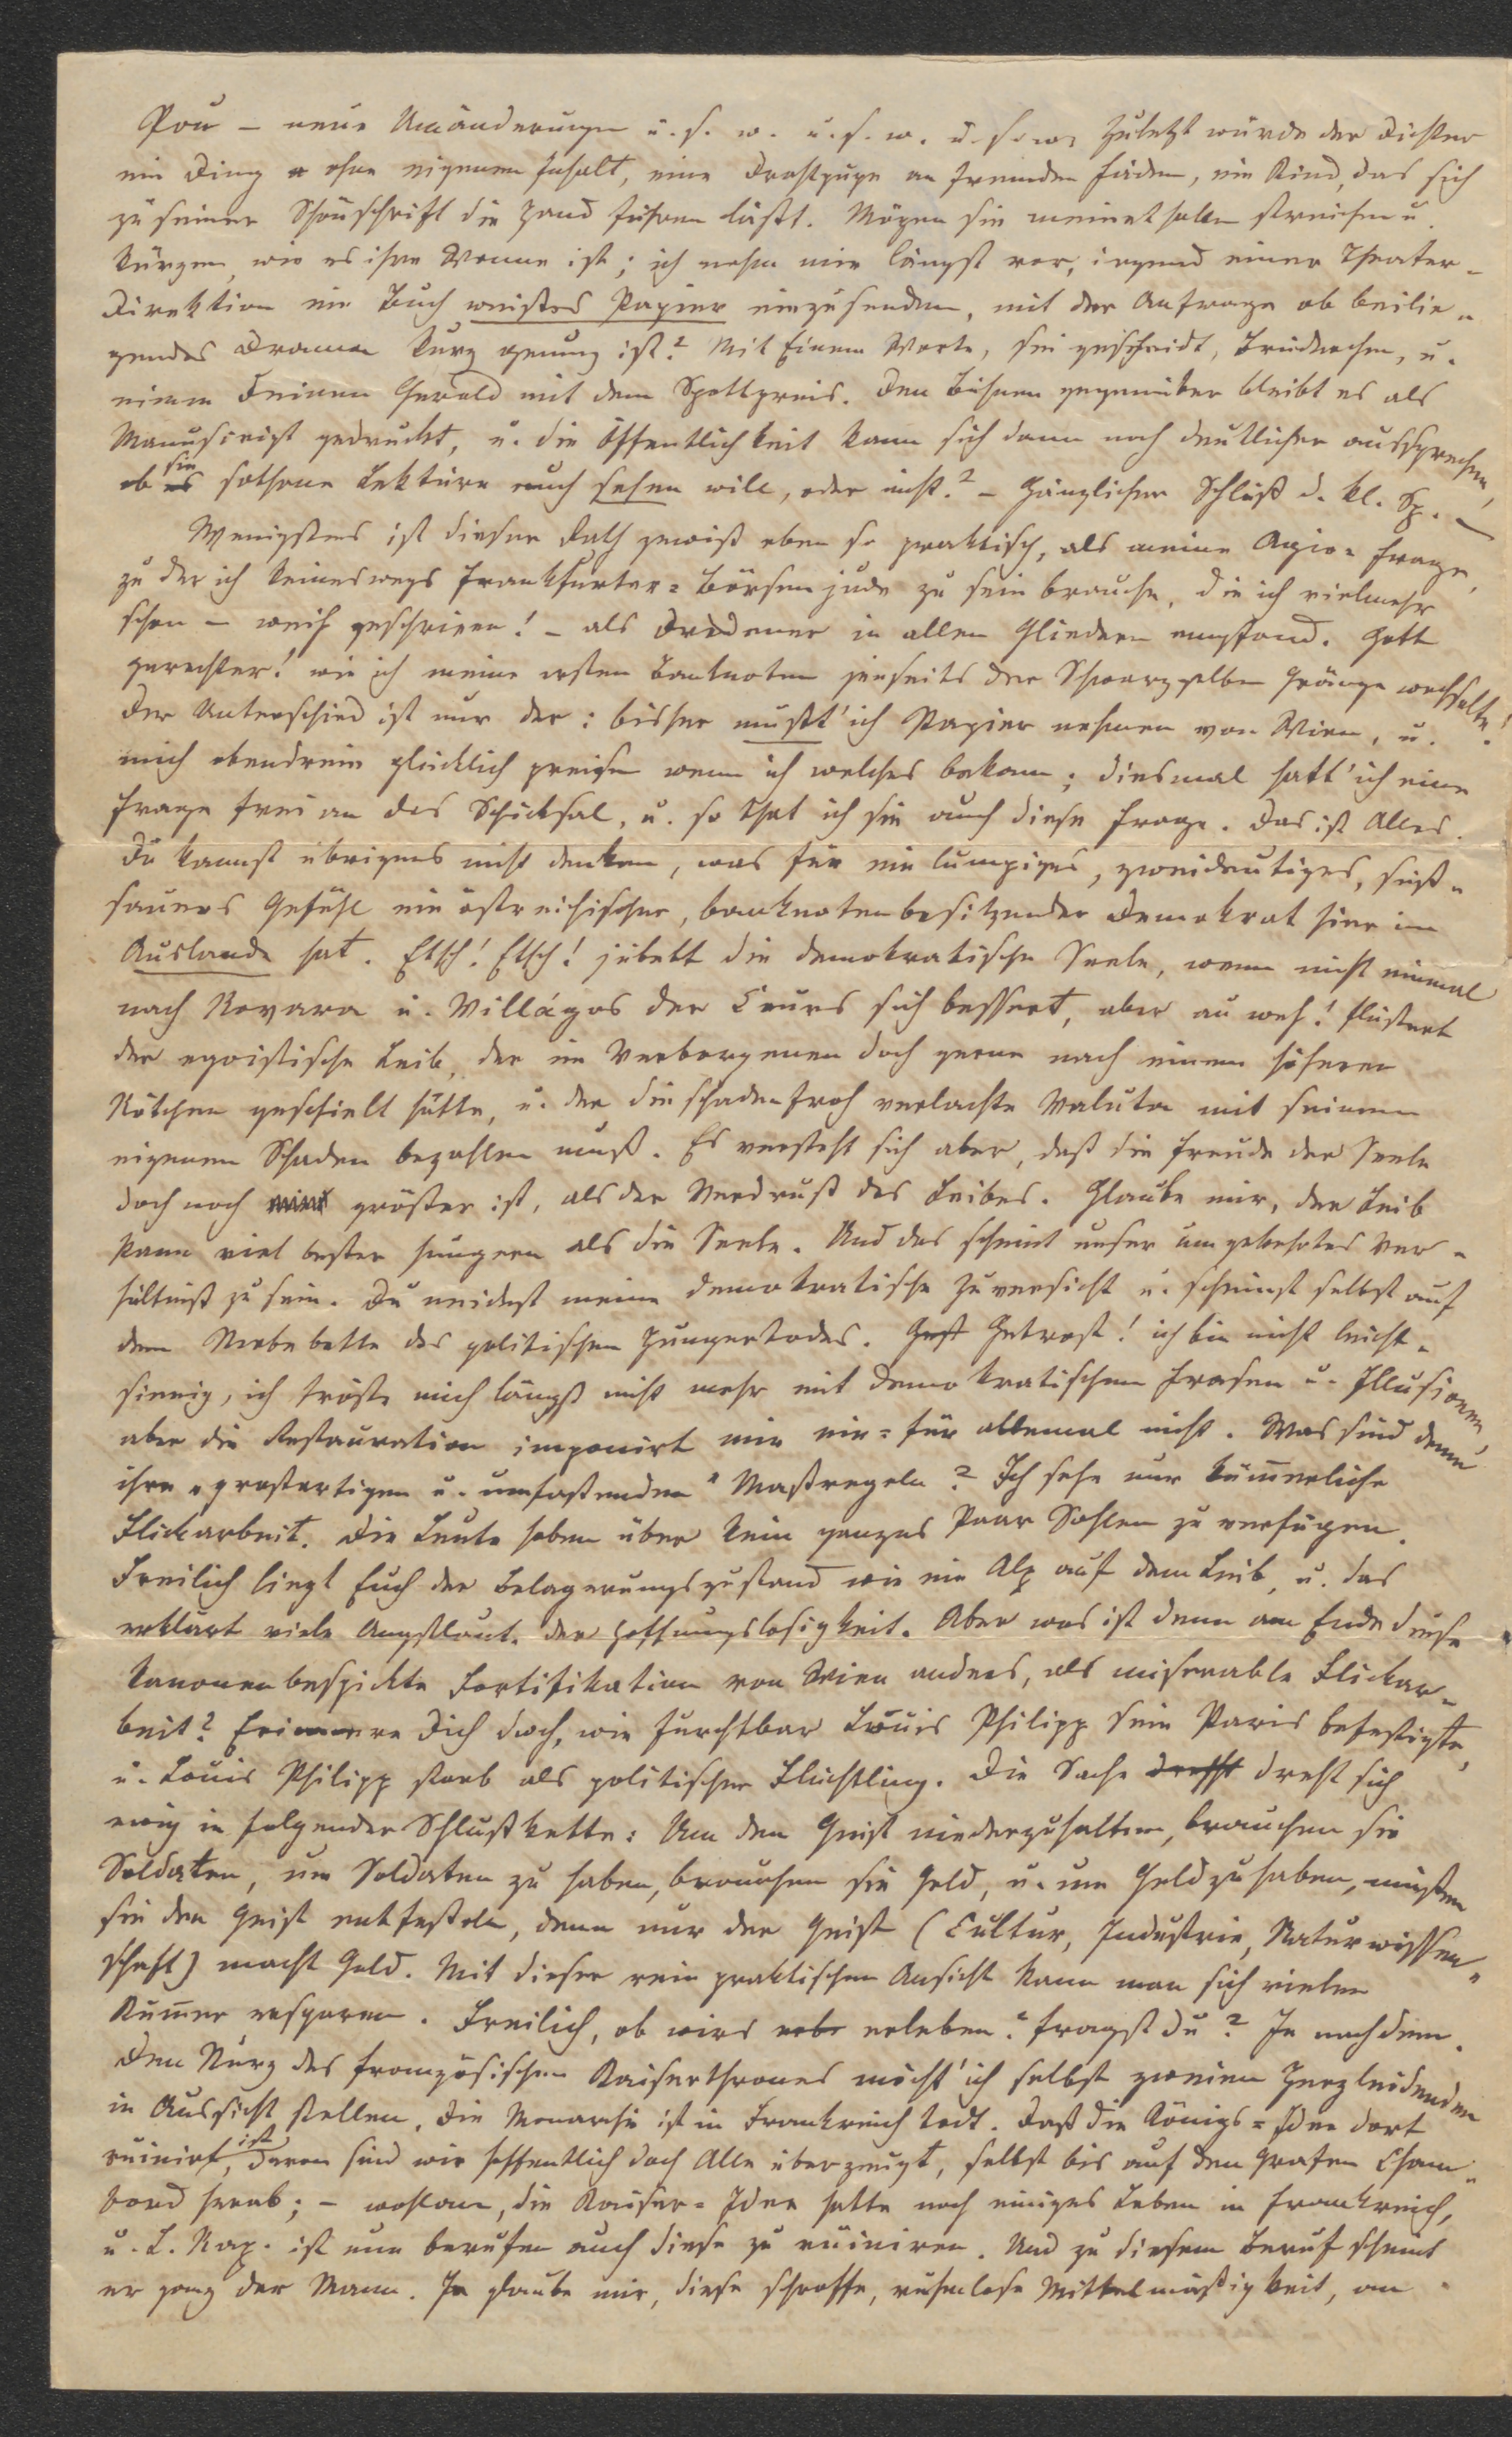 Pou — neue Umänderungen u. s. w. u. s. w. u. s. w. Zuletzt würde der Dichter
ein Ding ohne eigenen Inhalt, eine Drahtpupe an fremden Fäden, ein Kind, das sich
zu seiner Schönschrift die Hand führen läßt. Mögen sie meinethalben streichen u.
kürzen, wie es ihre Wonne ist; ich nehm mir längst vor, irgend einer Theater-
Direktion ein Buch weißes Papier einzusenden, mit der Anfrage ob beilie-
gendes Drama kurz genung ist? Mit Einem Worte, sei gescheidt, Brüderchen, u.
nimm Deinen Gerold mit dem Spottpreis. Den Bühnen gegenüber bleibt es als
Manuscript gedruckt, u. die Öffentlichkeit kann sich dann noch deutlicher aussprechen,
ob es sie sothane Lektüre auch sehen will, oder nicht? — Gänzlicher Schluß d. kl. Sp. —
Wenigstens ist dieser Rath gewiß eben so praktisch, als meine Agio-Frage,
zu der ich keineswegs Frankfurter-Börsenjude zu sein brauche, die ich vielmehr
schon — waih geschrieen! — als Dresdener in allen Gliedern empfand. Gott
gerechter! wie ich meine ersten Banknoten jenseits der Schwarzgelben Gränze wechselte!
Der Unterschied ist nur der: bisher mußt' ich Papier nehmen von Wien, u.
mich obendrein glücklich preisen wenn ich welches bekam; diesmal hatt' ich eine
Frage frei an das Schicksal, u. so that ich sie auch diese Frage. Das ist Alles.
Du kannst übrigens nicht denken, was für ein lumpiges, zweideutiges, süß-
saures Gefühl ein östreichischer, banknotenbesitzender Demokrat hier im
Auslande hat. Etsch! Etsch! jubelt die demokratische Seele, wenn nicht einmal
nach Novara u. Villágos der Cours sich bessert, aber au weh! flüstert
der egoistische Leib, der im Verborgenen doch gerne nach einem höheren
Nötchen geschielt hätte, u. der die schadenfroh verlachte Valuta mit seinem
eigenen Schaden bezahlen muß. Es versteht sich aber, daß die Freude der Seele
doch noch größer ist, als der Verdruß des Leibes. Glaube mir, der Leib
kann viel beßer hungern als die Seele. Und das scheint unser umgekehrtes Ver-
hältniß zu sein. Du neidest meine demokratische Zuversicht u. scheinst selbst auf
dem Sterbebette des politischen Hungertodes. Getrost! ich bin nicht leicht-
sinnig, ich tröste mich längst nicht mehr mit demokratischen Frasen u. Illusionen,
aber die Restauration imponirt mir ein- für allemal nicht. Was sind denn
ihre „großartigen u. umfaßenden" Maßregeln? Ich sehe nur kümmerliche
Flickarbeit. Die Leute haben über kein ganzes Paar Sohlen zu verfügen.
Freilich liegt Euch der Belagerungszustand wie ein Alp auf dem Leib, u. das
erklärt viele Angstlaute der Hoffnungslosigkeit. Aber was ist denn am Ende diese
kanonenbespickte Fortifikation von Wien anders, als miserable Flickar-
beit? Erinnere Dich doch, wie furchtbar Louis Philipp sein Paris befestigte,
u. Louis Philipp starb als politischer Flüchtling. Die Sache dreht sich
ewig in folgender Schlußkette: Um den Geist niederzuhalten, brauchen sie
Soldaten, um Soldaten zu haben, brauchen sie Geld, u. um Geld zu haben, müßen
sie den Geist entfeßeln, denn nur der Geist (Cultur, Industrie, Naturwissen-
schaft) macht Geld. Mit dieser rein praktischen Ansicht kann man sich vielen
Kummer ersparen. Freilich, ob wirs erleben? fragst Du? Je nachdem.
Den Sturz des französischen Kaiserthrones möcht' ich selbst zweien Herzleidenden
in Aussicht stellen. Die Monarchie ist in Frankreich todt. Daß die Königs-Idee dort
ruinirt ist, davon sind wir hoffentlich doch Alle überzeugt, selbst bis auf den Grafen Cham-
bord herab; — wohlan, die Kaiser-Idee hatte noch einiges Leben in Frankreich,
u. L. Nap. ist nun berufen auch diese zu ruiniren. Und zu diesem Beruf scheint
er ganz der Mann. Ja glaube mir, diese schroffe, ruhmlose Mittelmäßigkeit, an